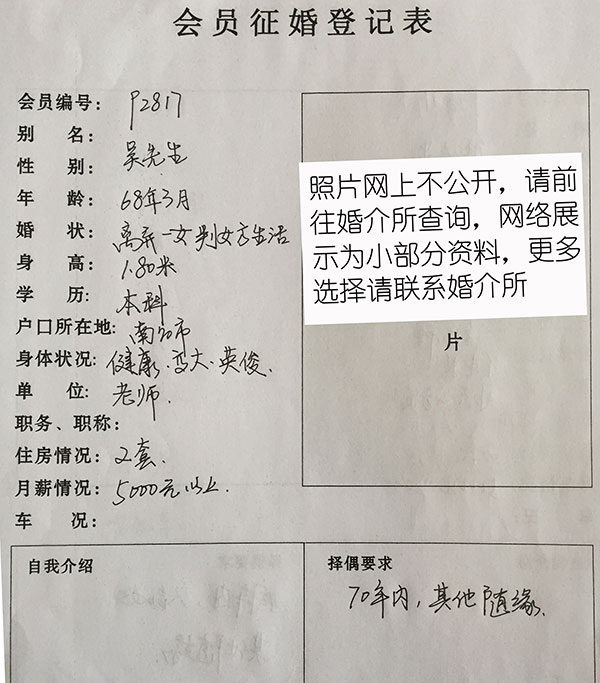 会员征婚登记表
会员编号： P2817
别 名：
性 别： 吴先生
年 龄： 68年3月
婚 状： 离异一女判女方生活
身 高： 1.80米
学 历： 本科
户口所在地： 南宁市
身体状况： 健康.高大.英俊.
单 位: 老师.
职务、职称:
住房情况: 2套.
月薪情况: 5000元以上.
车 况:
照片网上不公开，请前
往婚介所查询，网络展
示为小部分资料，更多
选择请联系婚介所
片
自我介绍
择偶要求
70年内，其他随缘.